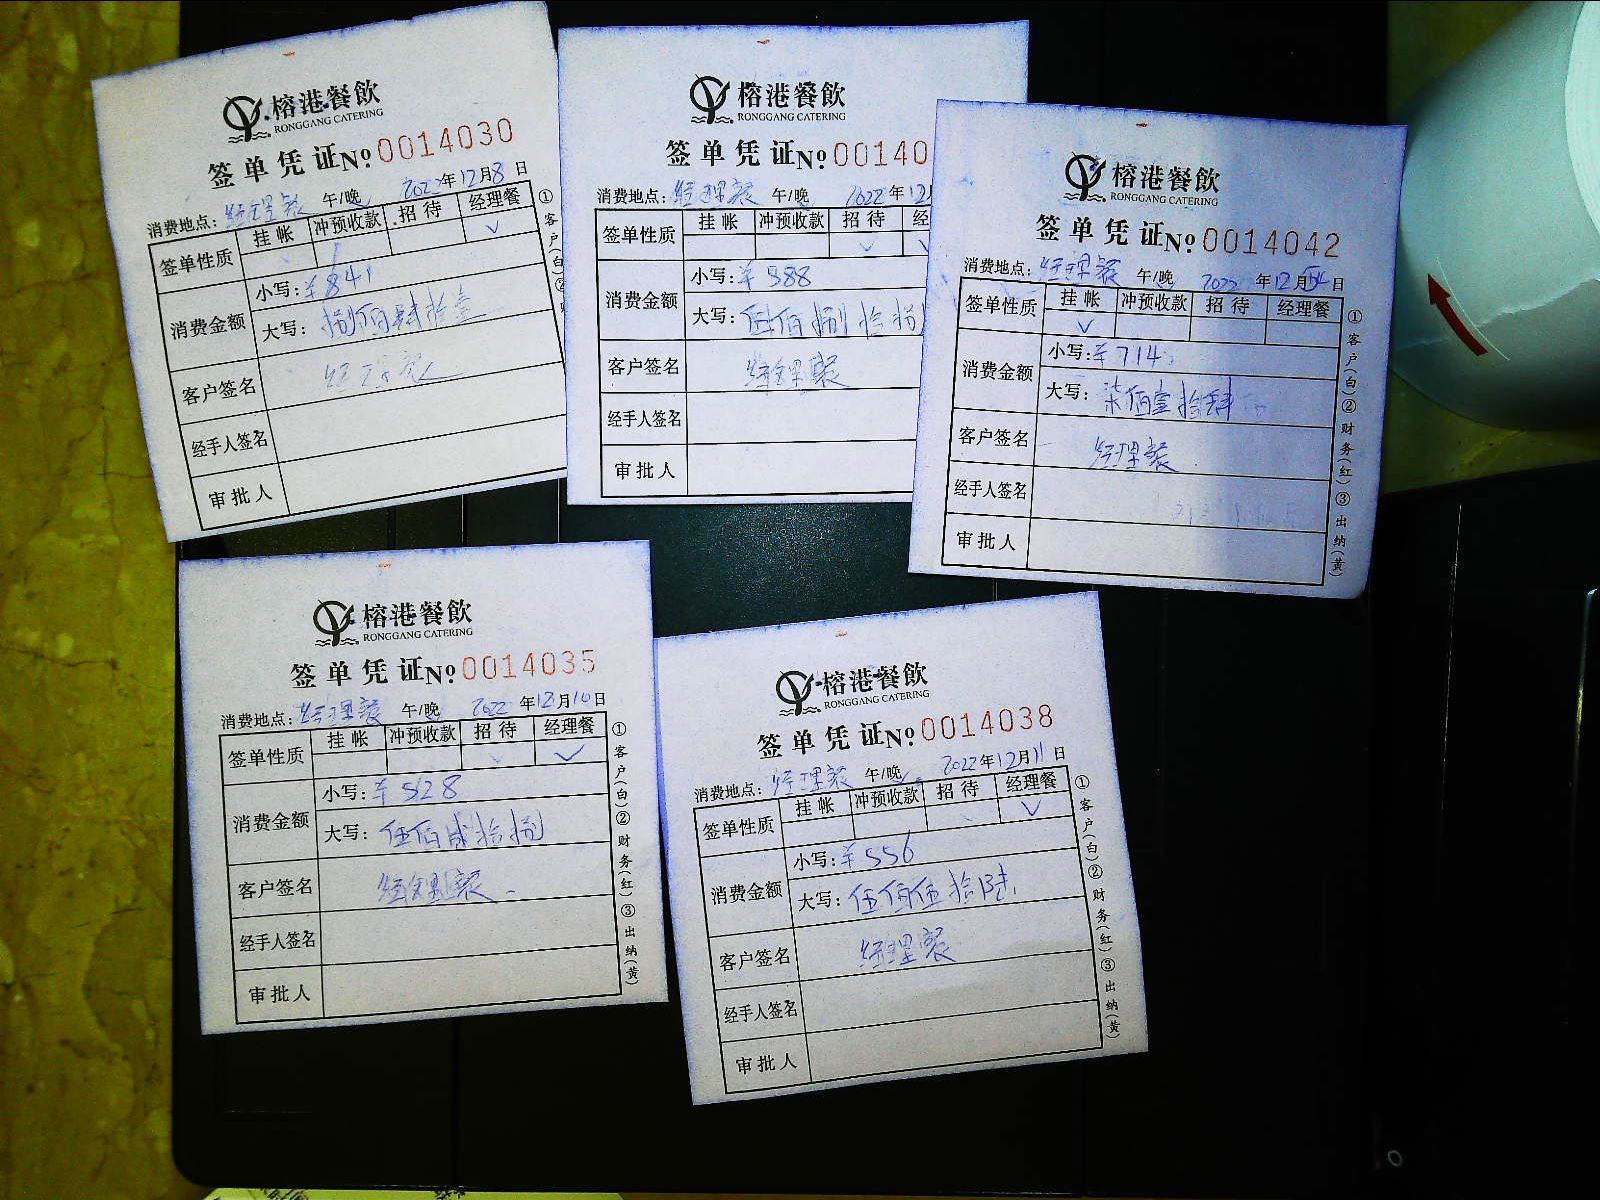 榕港餐飲
RONGGANG CATERING
签单凭证No 0014030
消费地点: 经理餐 午/晚 2022年12月8日
签单性质 挂帐 冲预收款 招待 经理餐
✓
消费金额 小写: ¥841
大写: 捌佰肆拾壹
客户签名 经理餐
经手人签名
审批人
①客户(白)②财
榕港餐飲
RONGGANG CATERING
签单凭证No 00140
消费地点: 经理餐 午/晚 2022年12月
签单性质 挂帐 冲预收款 招待 经
消费金额 小写: ¥588
大写: 伍佰捌拾捌
客户签名 经理餐
经手人签名
审批人
榕港餐飲
RONGGANG CATERING
签单凭证No 0014042
消费地点: 经理餐 午/晚 2022年12月 日
签单性质 挂帐 冲预收款 招待 经理餐
✓
消费金额 小写: ¥714
大写: 柒佰壹拾肆
客户签名 经理餐
经手人签名
审批人
①客户(白)②财务(红)③出纳(黄)
榕港餐飲
RONGGANG CATERING
签单凭证No 0014035
消费地点: 经理餐 午/晚 2022年12月10日
签单性质 挂帐 冲预收款 招待 经理餐
✓
消费金额 小写: ¥528
大写: 伍佰贰拾捌
客户签名 经理餐
经手人签名
审批人
①客户(白)②财务(红)③出纳(黄)
榕港餐飲
RONGGANG CATERING
签单凭证No 0014038
消费地点: 经理餐 午/晚 2022年12月11日
签单性质 挂帐 冲预收款 招待 经理餐
✓
消费金额 小写: ¥556
大写: 伍佰伍拾陆
客户签名 经理餐
经手人签名
审批人
①客户(白)②财务(红)③出纳(黄)